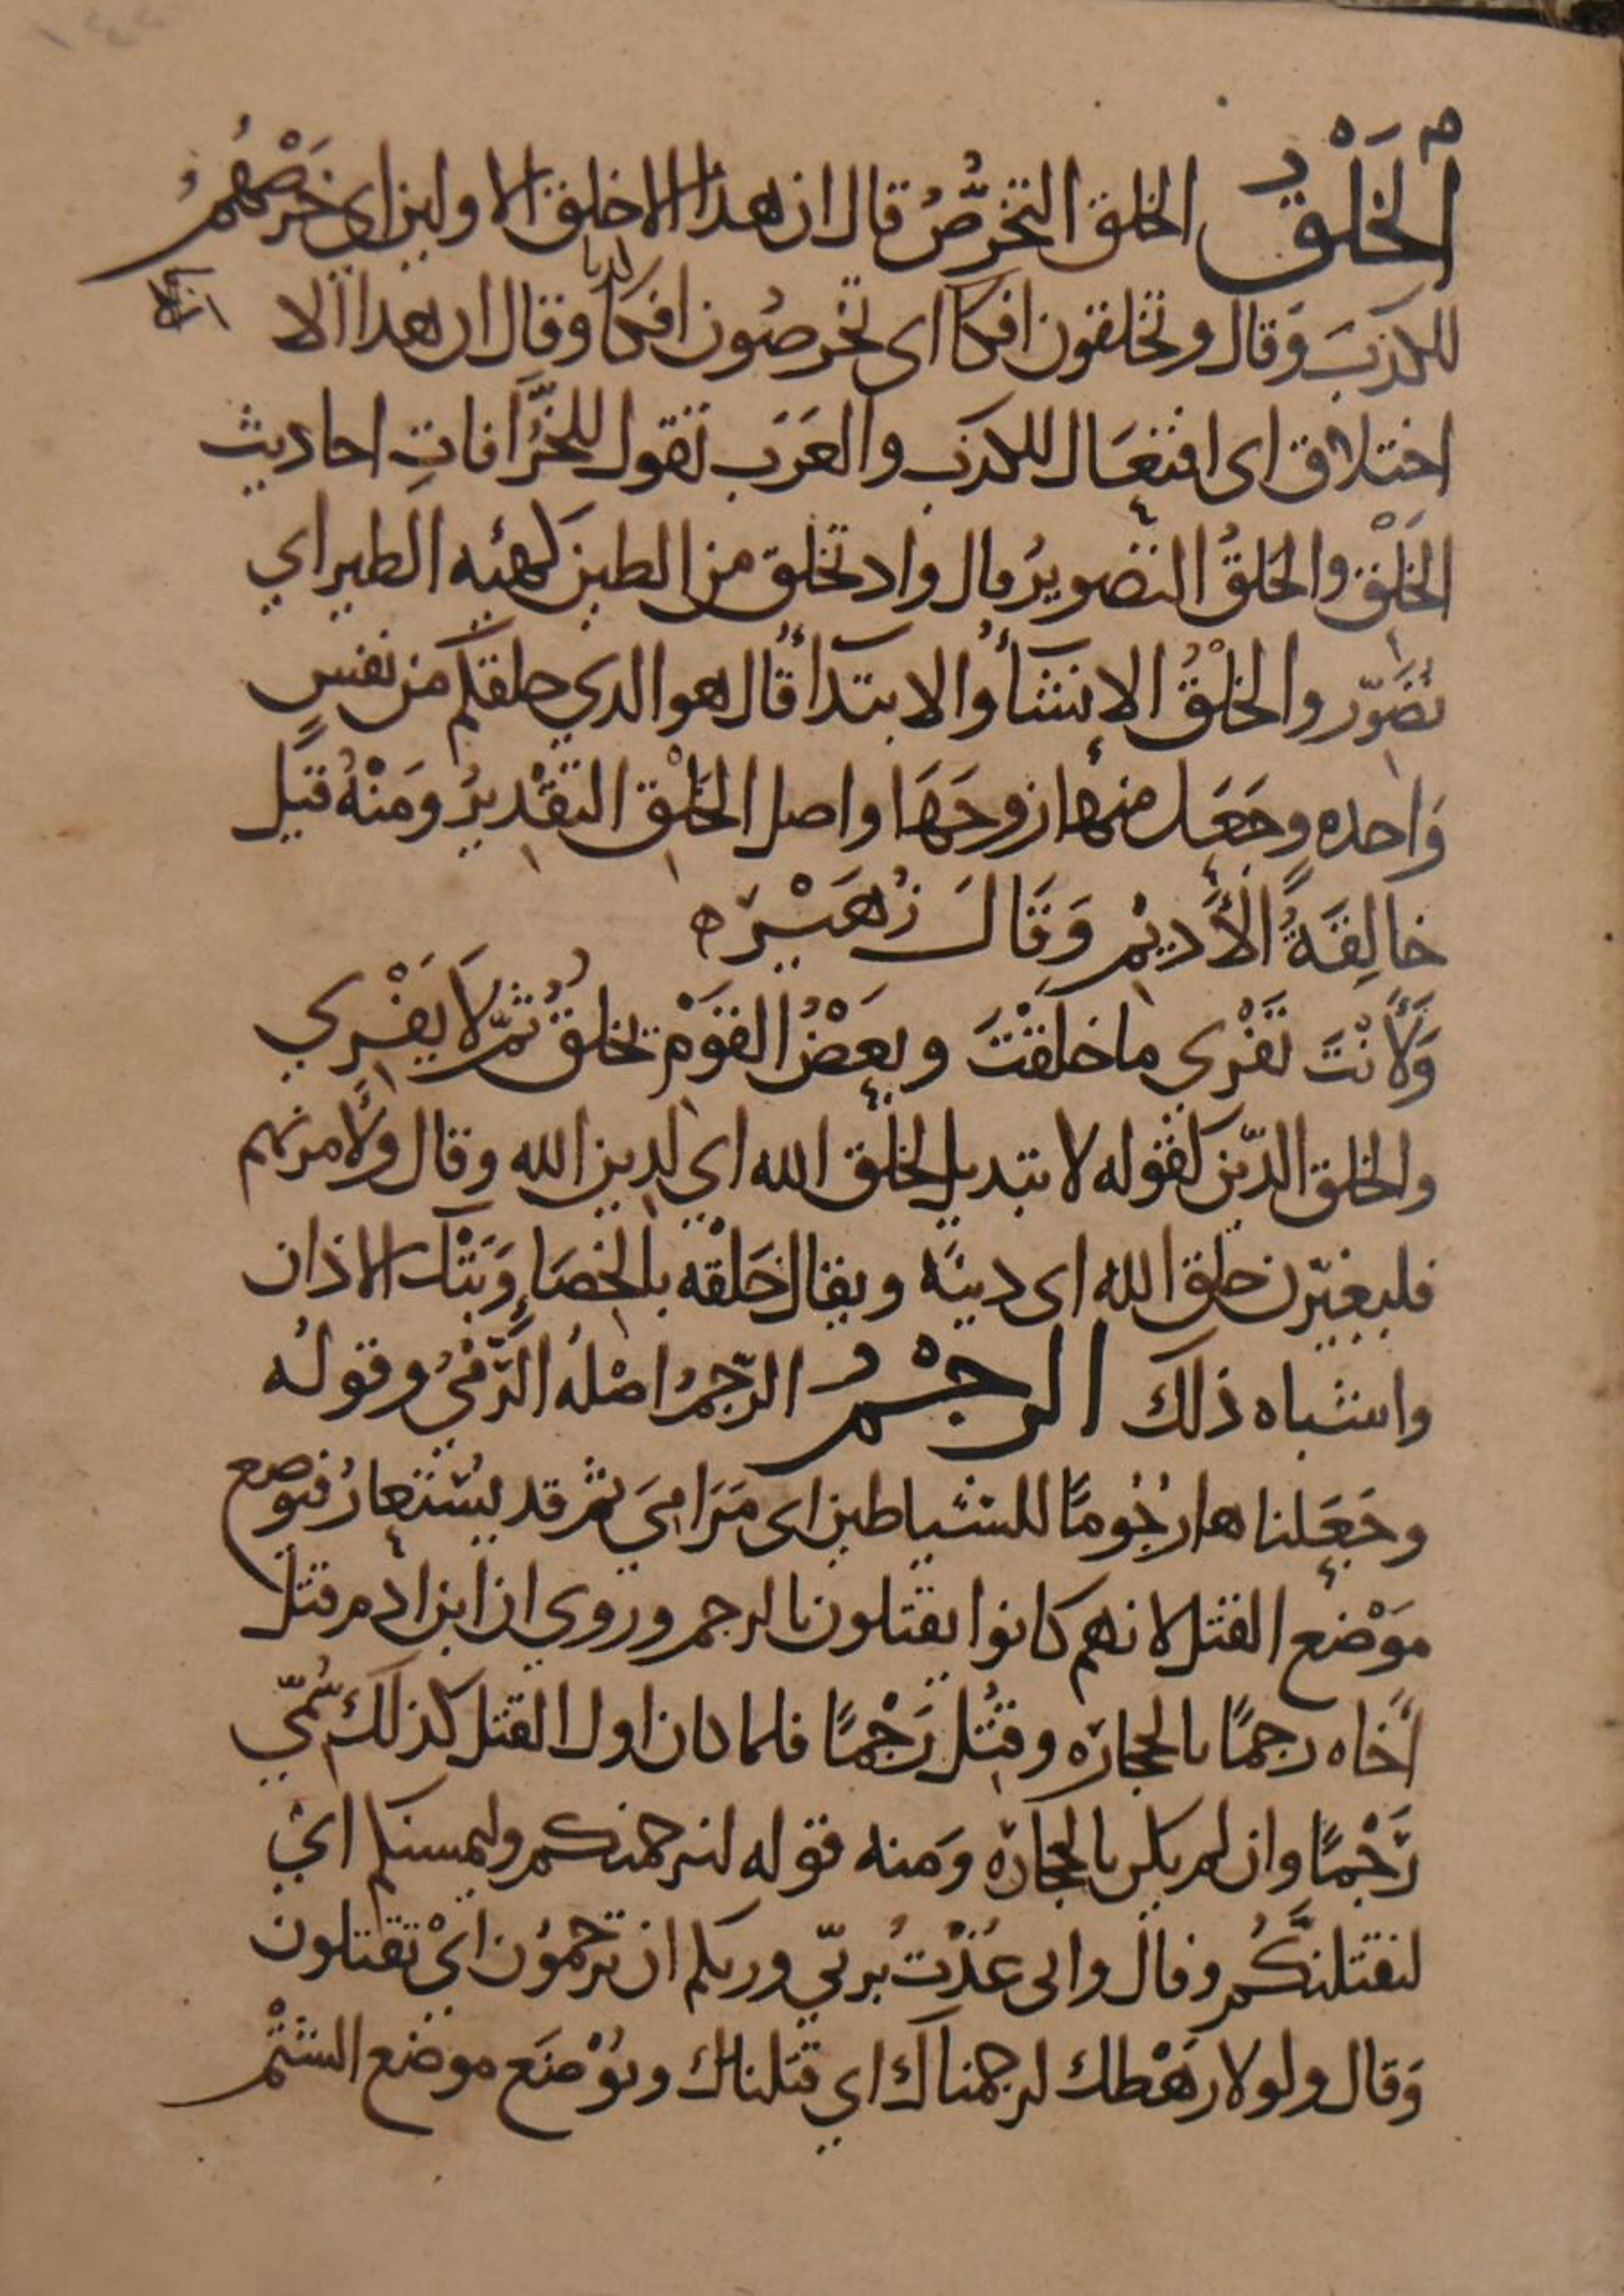 الخَلْقُ الخلق التخرُّصُ قال ان هذا الا خلق الاولين اى خَرْصُهُمُ
للكذبَ وَقال وتخلقون افكا اى تخرصُون افكا كذبا وقال ان هذا الا
اختلاق اى افتعَال للكذب والعَرَب تقول للخُرَّافاتِ احاديث
الخَلْق والخلقُ التصويرُ قال واذ تخلق من الطين كهيئه الطير اي
تصَوّر والخلْقُ الإنشَأُ والابتدَأُ قال هو الذي خلقكم من نفسٍ
وَاحده وجَعَل منها زوجَهَا واصل الخَلْق التقْديرُ ومَنْهُ قيل
خالِقَةُ الأَديْم وَقَالَ زُهَيْر ه
وَلَأنْتَ تَفْرِي ما خلقْتَ وبعَضُ القَوْم تخلقُ ثمّ لَا يَفْرِي
والخلق الدّين كقوله لا تبديل لخلق الله اي لدين الله وقال ولَآمرنهم
فليغيّرن خلق الله اى دينَه ويقال خَلْقه بالخِصَاءِ وَبَتْك الاذان
واشباه ذلك الرجْمُ الرّجمُ اصْلهُ الرَّمْيُ وقولُه
وجَعَلناها رُجُومًا للشياطين اى مَرَامِيَ ثم قد يُسْتعارُ فيوضع
موَْضع القتل لانهم كانوا يقتلون بالرجم وروي ان ابن ادم قتل
أَخاه رجمًا بالحجارَه وقُتل رَجْمًا فلما كان اول القتل كذلك سُمّي
رَجْمًا وان لم يكن بالحجارَه وَمنه قوله لنرجمنكم وليمسنكم ايْ
لنقتلنَّكُم وقال وانى عُذْتُ بربّي وربكم ان ترْجمُون ايْ تقتلون
وَقال ولولا رَهْطك لرجمناك اي قتلناك ويُوْضَع موضع الشتْم